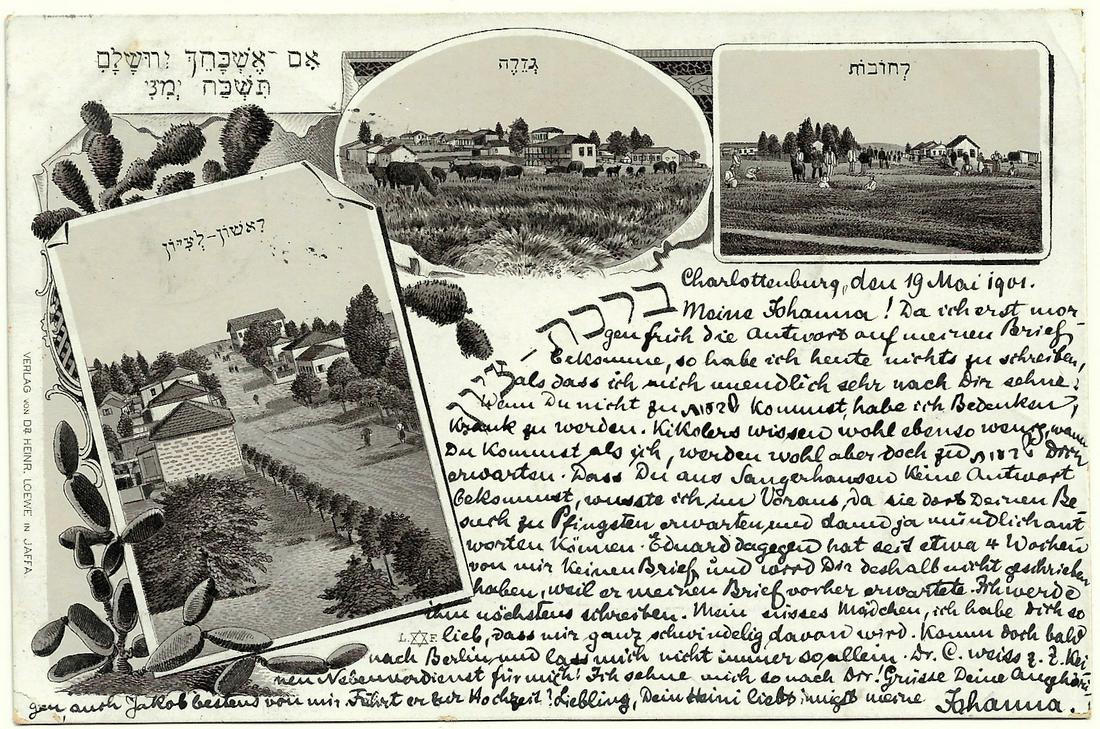 אִם-אֶשְׁכָּחֵךְ יְרוּשָׁלָםִ
תִּשְׁכַּח יְמִנִי
גְּדֵרָה
רְחוֹבוֹת
רִאשׁוֹן-לְצִיּוֹן
ברכת
Charlottenburg, den 19 Mai 1901.
Meine Johanna! Da ich erst mor-
gen früh die Antwort auf meinen Brief
bekomme, so habe ich heute nichts zu schreiben,
als dass ich mich unendlich sehr nach Dir sehne!
Wenn Du nicht zu kommst, habe ich Bedenken,
krank zu werden. Kikolers wissen wohl ebenso wenig, wann
Du kommst als ich, werden wohl aber doch zu Dich
erwarten. Dass Du aus Sangerhausen keine Antwort
bekommst, wusste ich im Voraus, da sie dort Deinen Be-
such zu Pfingsten erwarten und dann ja mündlich ant
worten können. Eduard dagegen hat seit etwa 4 Wochen
von mir keinen Brief und wird Dir deshalb nicht geschrieben
haben, weil er meinen Brief vorher erwartete. Ich werde
ihm nächstens schreiben. Mein süsses Mädchen, ich habe dich so
lieb, dass mir ganz schwindelig davon wird. Komm doch bald
nach Berlin und lass mich nicht immer so allein. Dr. C. weiss z. Z. kei
nen Nebenverdienst für mich! Ich sehne mich so nach Dir. Grüsse Deine Angehöri-
gen, auch Jakob bestens von mir. Fährt er zur Hochzeit? Liebling, Dein Heini liebt innigst meine Johanna.
L. F.
VERLAG VON DR. HEINR. LOEWE IN JAFFA